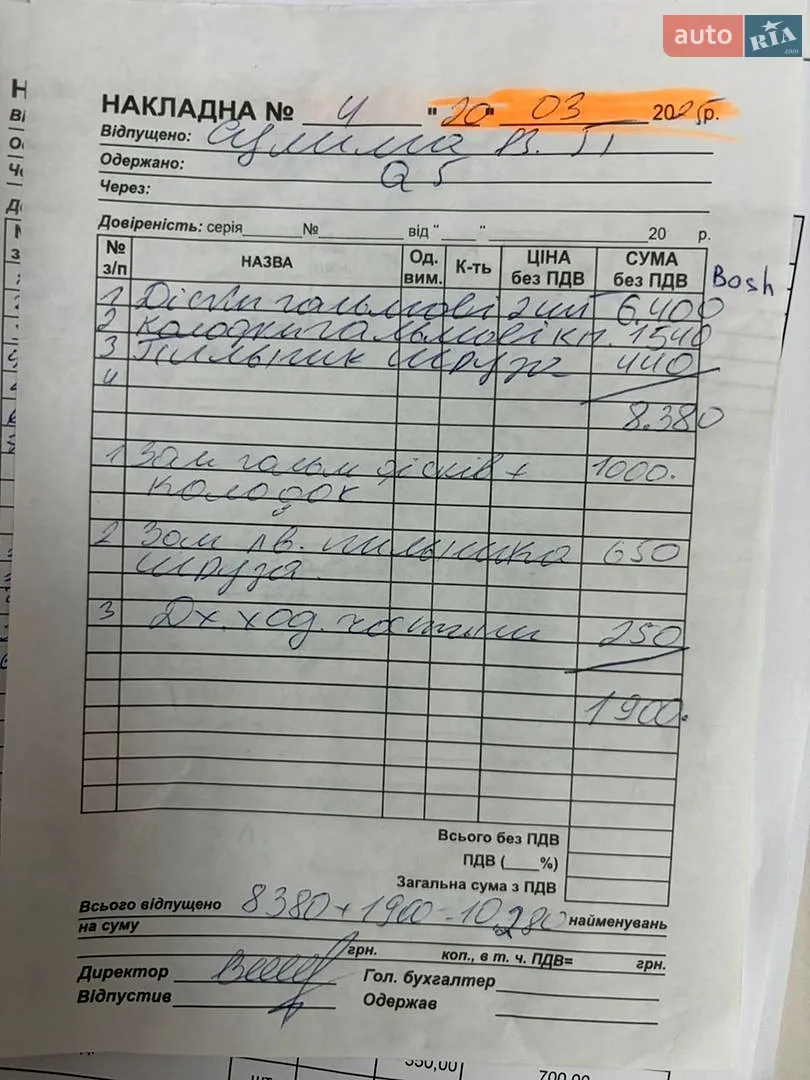 auto RIA .com
НАКЛАДНА № 4 "20" 03 2025р.
Відпущено: Сулима В. П
Одержано: Q5
Через:
Довіреність: серія № від " " 20 р.
№ з/п НАЗВА Од. вим. К-ть ЦІНА без ПДВ СУМА без ПДВ Bosh
1 Діски гальмові 2шт 6.400
2 Колодки гальмові кп. 1540
3 Пильник шруза 440
4
8.380
1 Зам гальм дісків + 1000.
колодок
2 Зам лв. пильника 650
шруза
3 Dх. ход. частини 250
1900.
Всього без ПДВ
ПДВ ( %)
Загальна сума з ПДВ
Всього відпущено 8380 + 1900 = 10,280 найменувань
на суму
грн. коп., в т. ч. ПДВ= грн.
Директор Гол. бухгалтер
Відпустив Одержав
350,00
шт 700,00